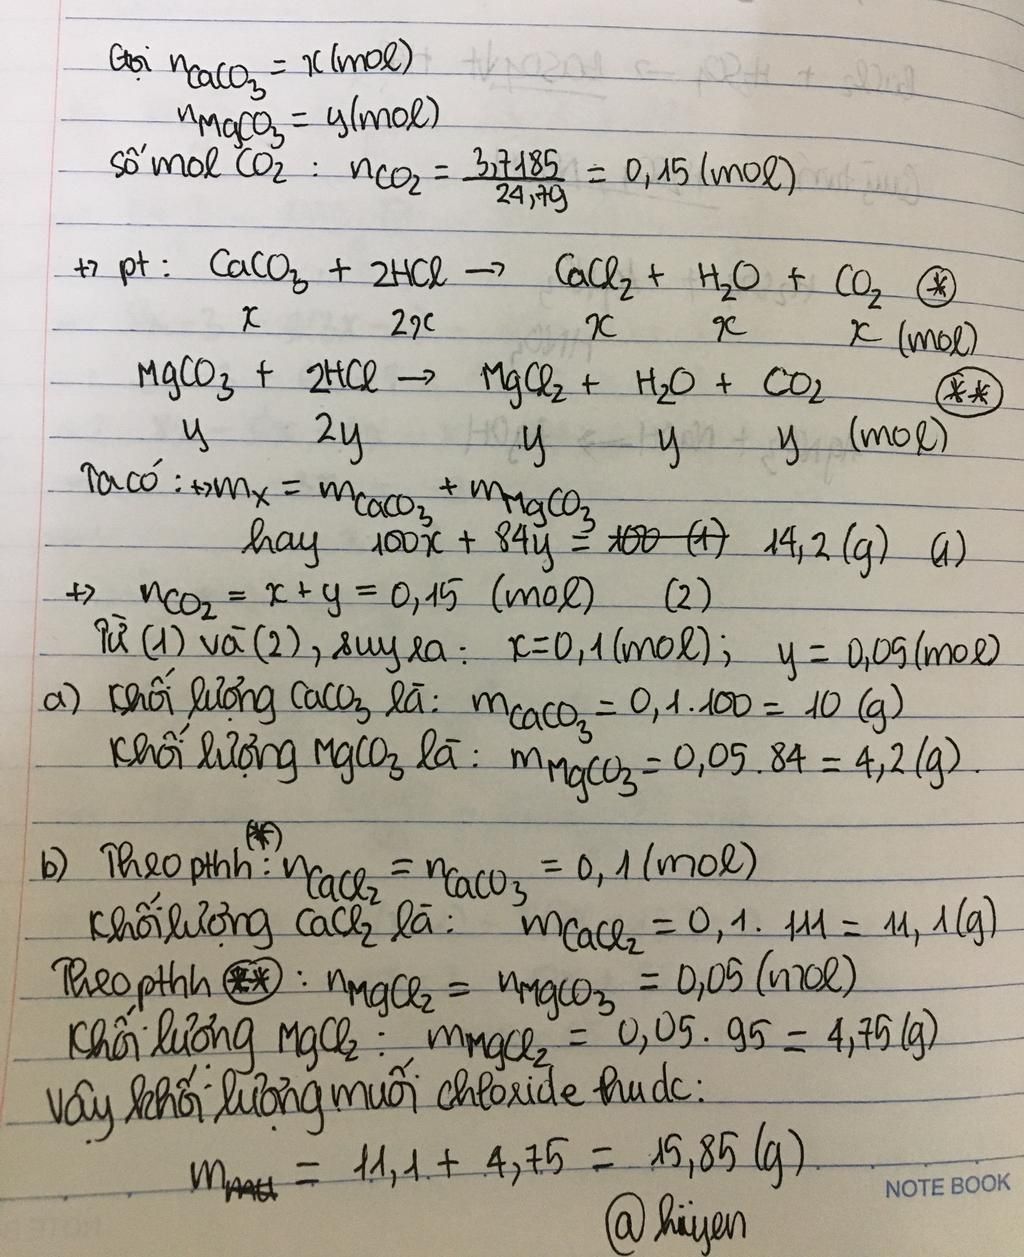 Gọi nCaCO3 = x(mol)
nMgCO3 = y(mol)
số mol CO2 : nCO2 = 3,7185/24,79 = 0,15 (mol)
+> pt : CaCO3 + 2HCl → CaCl2 + H2O + CO2 (*)
x 2x x x x (mol)
MgCO3 + 2HCl → MgCl2 + H2O + CO2 (**)
y 2y y y y (mol)
Ta có : +> mX = mCaCO3 + mMgCO3
hay 100x + 84y = 100 (1) 14,2 (g) (1)
+> nCO2 = x + y = 0,15 (mol) (2)
Từ (1) và (2), suy ra : x=0,1 (mol) ; y = 0,05 (mol)
a) Khối lượng CaCO3 là : mCaCO3 = 0,1.100 = 10 (g)
Khối lượng MgCO3 là : mMgCO3 = 0,05.84 = 4,2 (g).
b) Theo pthh (*) : nCaCl2 = nCaCO3 = 0,1 (mol)
Khối lượng CaCl2 là : mCaCl2 = 0,1. 111 = 11,1 (g)
Theo pthh (**) : nMgCl2 = nMgCO3 = 0,05 (mol)
Khối lượng MgCl2 : mMgCl2 = 0,05. 95 = 4,75 (g)
Vậy khối lượng muối chloxide thu đc :
m = 11,1 + 4,75 = 15,85 (g).
NOTE BOOK